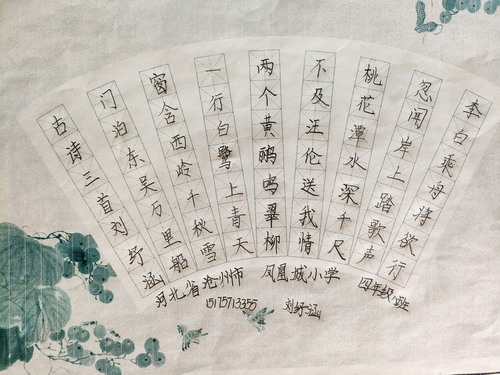 李白乘舟将欲行
忽闻岸上踏歌声
桃花潭水深千尺
不及汪伦送我情
两个黄鹂鸣翠柳
一行白鹭上青天
窗含西岭千秋雪
门泊东吴万里船
古诗三首刘纾涵
河北省沧州市 凤凰城小学 四年级班
15175713355 刘纾涵